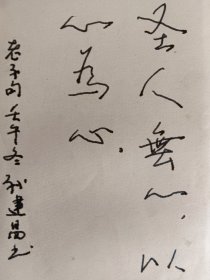 圣人無心，以
心為心．
老子句 壬午冬 建昌书